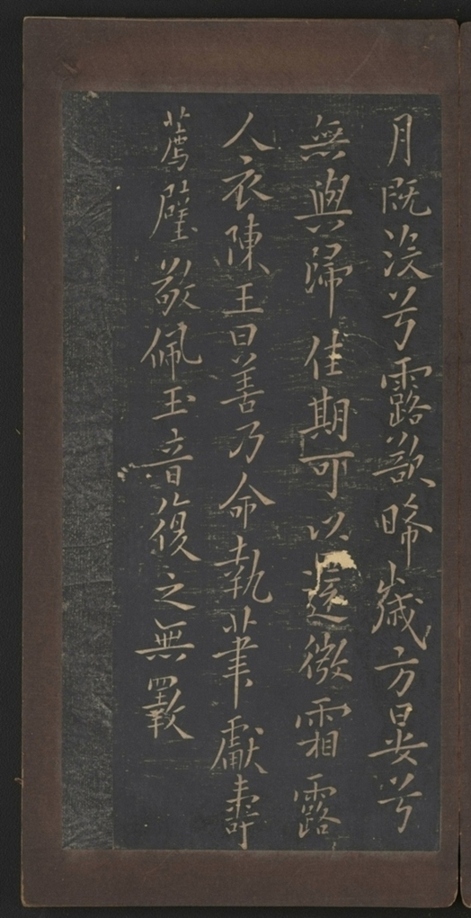 月既没兮露欲晞歲方晏兮
無與歸佳期可以還微霜露
人衣陳王曰善乃命執事獻壽
薦璧敬佩玉音復之無斁